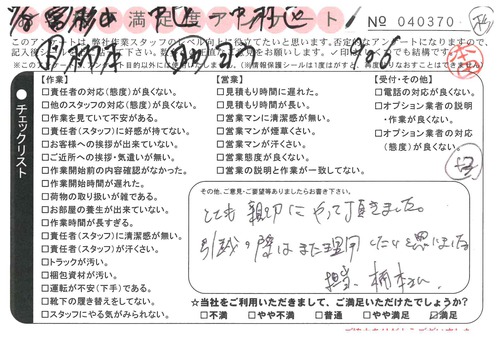 満足度アンケート
№ 040370
このアンケートは、弊社作業スタッフのレベル向上に役立てたいと思います。
チェックリスト
【作業】
□責任者の対応(態度)が良くない。
□他のスタッフの対応(態度)が良くない。
□作業を見ていて不安がある。
□責任者(スタッフ)に好感が持てない。
□お客様への挨拶が出来ていない。
□ご近所への挨拶・気遣いが無い。
□作業開始前の内容確認がなかった。
□作業開始時間が遅れた。
□荷物の取り扱いが雑である。
□お部屋の養生が出来ていない。
□作業時間が長すぎる。
□責任者(スタッフ)に清潔感が無い。
□責任者(スタッフ)が汗くさい。
□トラックが汚い。
□梱包資材が汚い。
□運転が不安(下手)である。
□靴下の履き替えをしてない。
□スタッフにやる気がみられない。
【営業】
□見積もり時間に遅れた。
□見積もり時間が長い。
□営業マンに清潔感が無い。
□営業マンが煙草くさい。
□営業マンが汗くさい。
□営業態度が良くない。
□営業の説明と作業が一致してない。
【受付・その他】
□電話の対応が良くない。
□オプション業者の説明・作業が良くない。
□オプション業者の対応(態度)が良くない。
その他、ご意見・ご要望等ありましたらお書き下さい。
とても親切にやって頂きました。
引越の際はまた利用したいと思いました
担当、楠本さん
☆当社をご利用いただきまして、ご満足いただけたでしょうか?
□不満 □やや不満 □普通 □やや満足 ☑満足